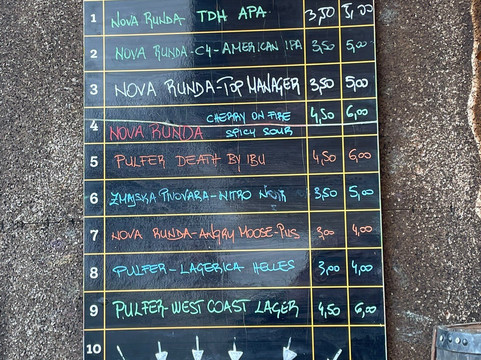 1 NOVA RUNDA TDH APA 3,50 5,00
2 NOVA RUNDA-C4-AMERICAN IPA 3,50 5,00
3 NOVA RUNDA-TOP MANAGER 3,50 5,00
CHERRY ON FIRE 4,50 6,00
4 NOVA RUNDA SPICY SOUR
5 PULFER DEATH BY IBU 4,50 6,00
6 ZMAJSKA PIVOVARA-NITRO NOIR 3,50 5,00
7 NOVA RUNDA-ANGRY MOOSE-PILS 3,00 4,00
8 PULFER-LAGERICA HELLES 3,00 4,00
9 PULFER-WEST COAST LAGER 4,50 6,00
10